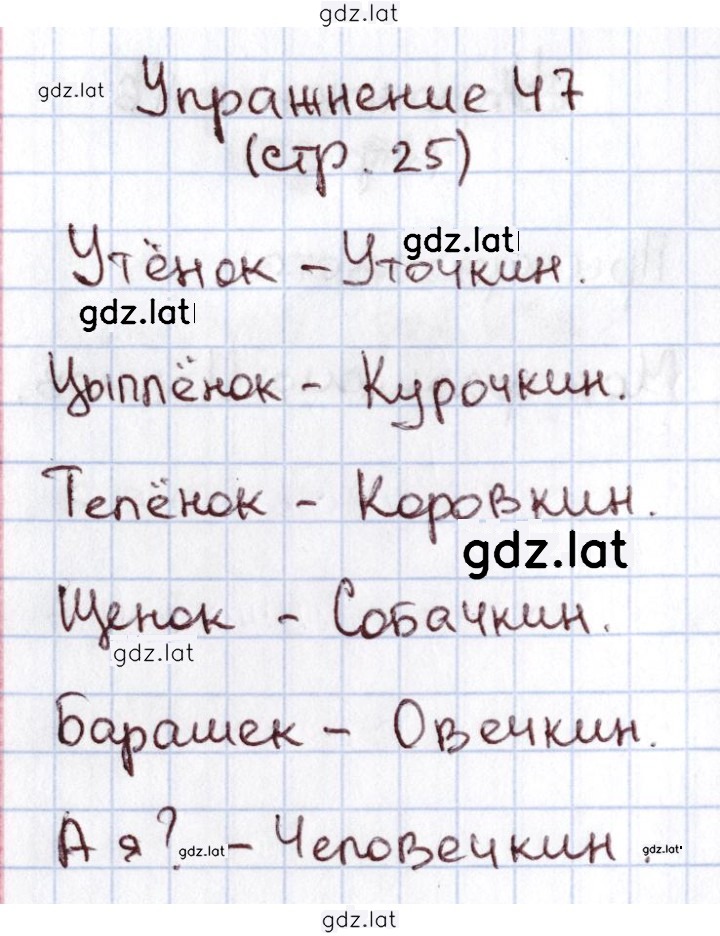 gdz.lat
gdz.lat Упражнение 47
(стр. 25)
Утёнок - Уточкин.
gdz.lat
gdz.lat
Цыплёнок - Курочкин.
Телёнок - Коровкин.
gdz.lat
Щенок - Собачкин.
gdz.lat
Барашек - Овечкин.
А я? gdz.lat - Человечкин. gdz.lat
gdz.lat